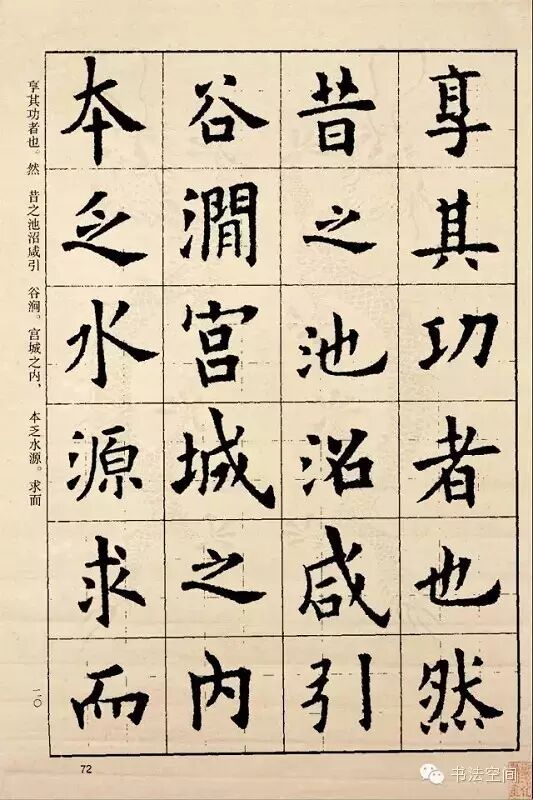 享其功者也然
昔之池沼咸引
谷澗宫城之内
本乏水源求而
享其功者也。然 昔之池沼咸引 谷涧。宫城之内、 本乏水源。求而
二〇
72
书法空间